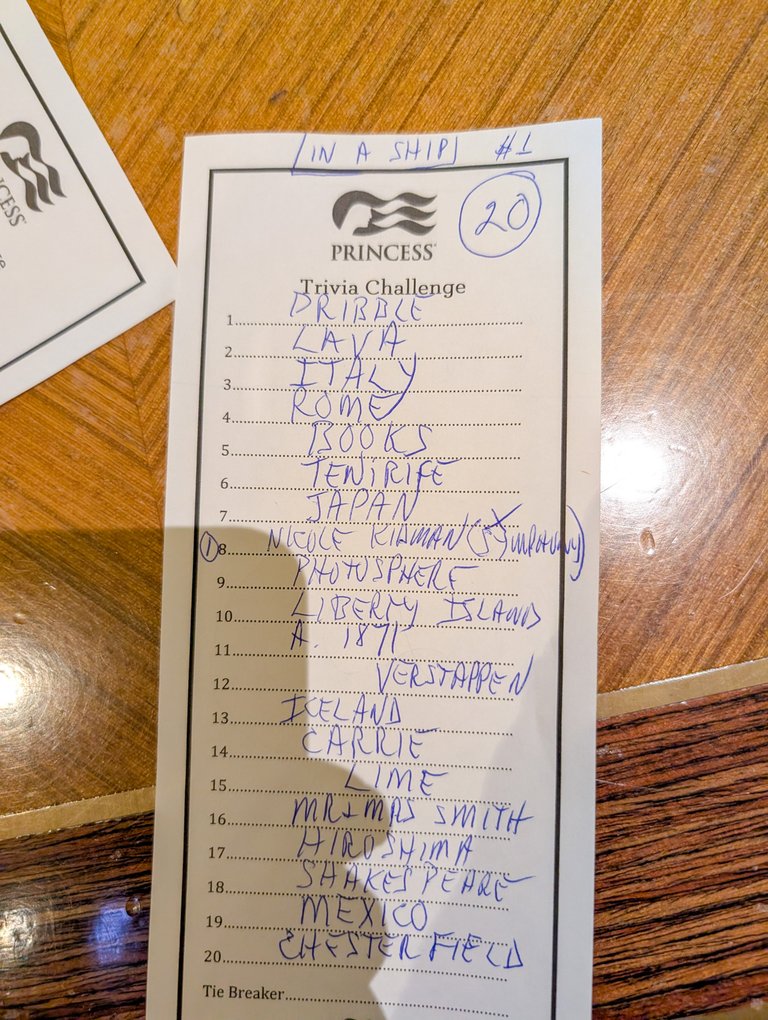 [IN A SHIP] #1
20
PRINCESS
Trivia Challenge
1. DRIBBLE
2. LAVA
3. ITALY
4. ROME
5. BOOKS
6. TENIRIFE
7. JAPAN
1 8. NICOLE KIDMAN (SYMPHONY)
9. PHOTOSPHERE
10. LIBERTY ISLAND
11. A. 1871
12. VERSTAPPEN
13. ICELAND
14. CARRIE
15. LIME
16. MR & MRS SMITH
17. HIROSHIMA
18. SHAKESPEARE
19. MEXICO
20. CHESTERFIELD
Tie Breaker